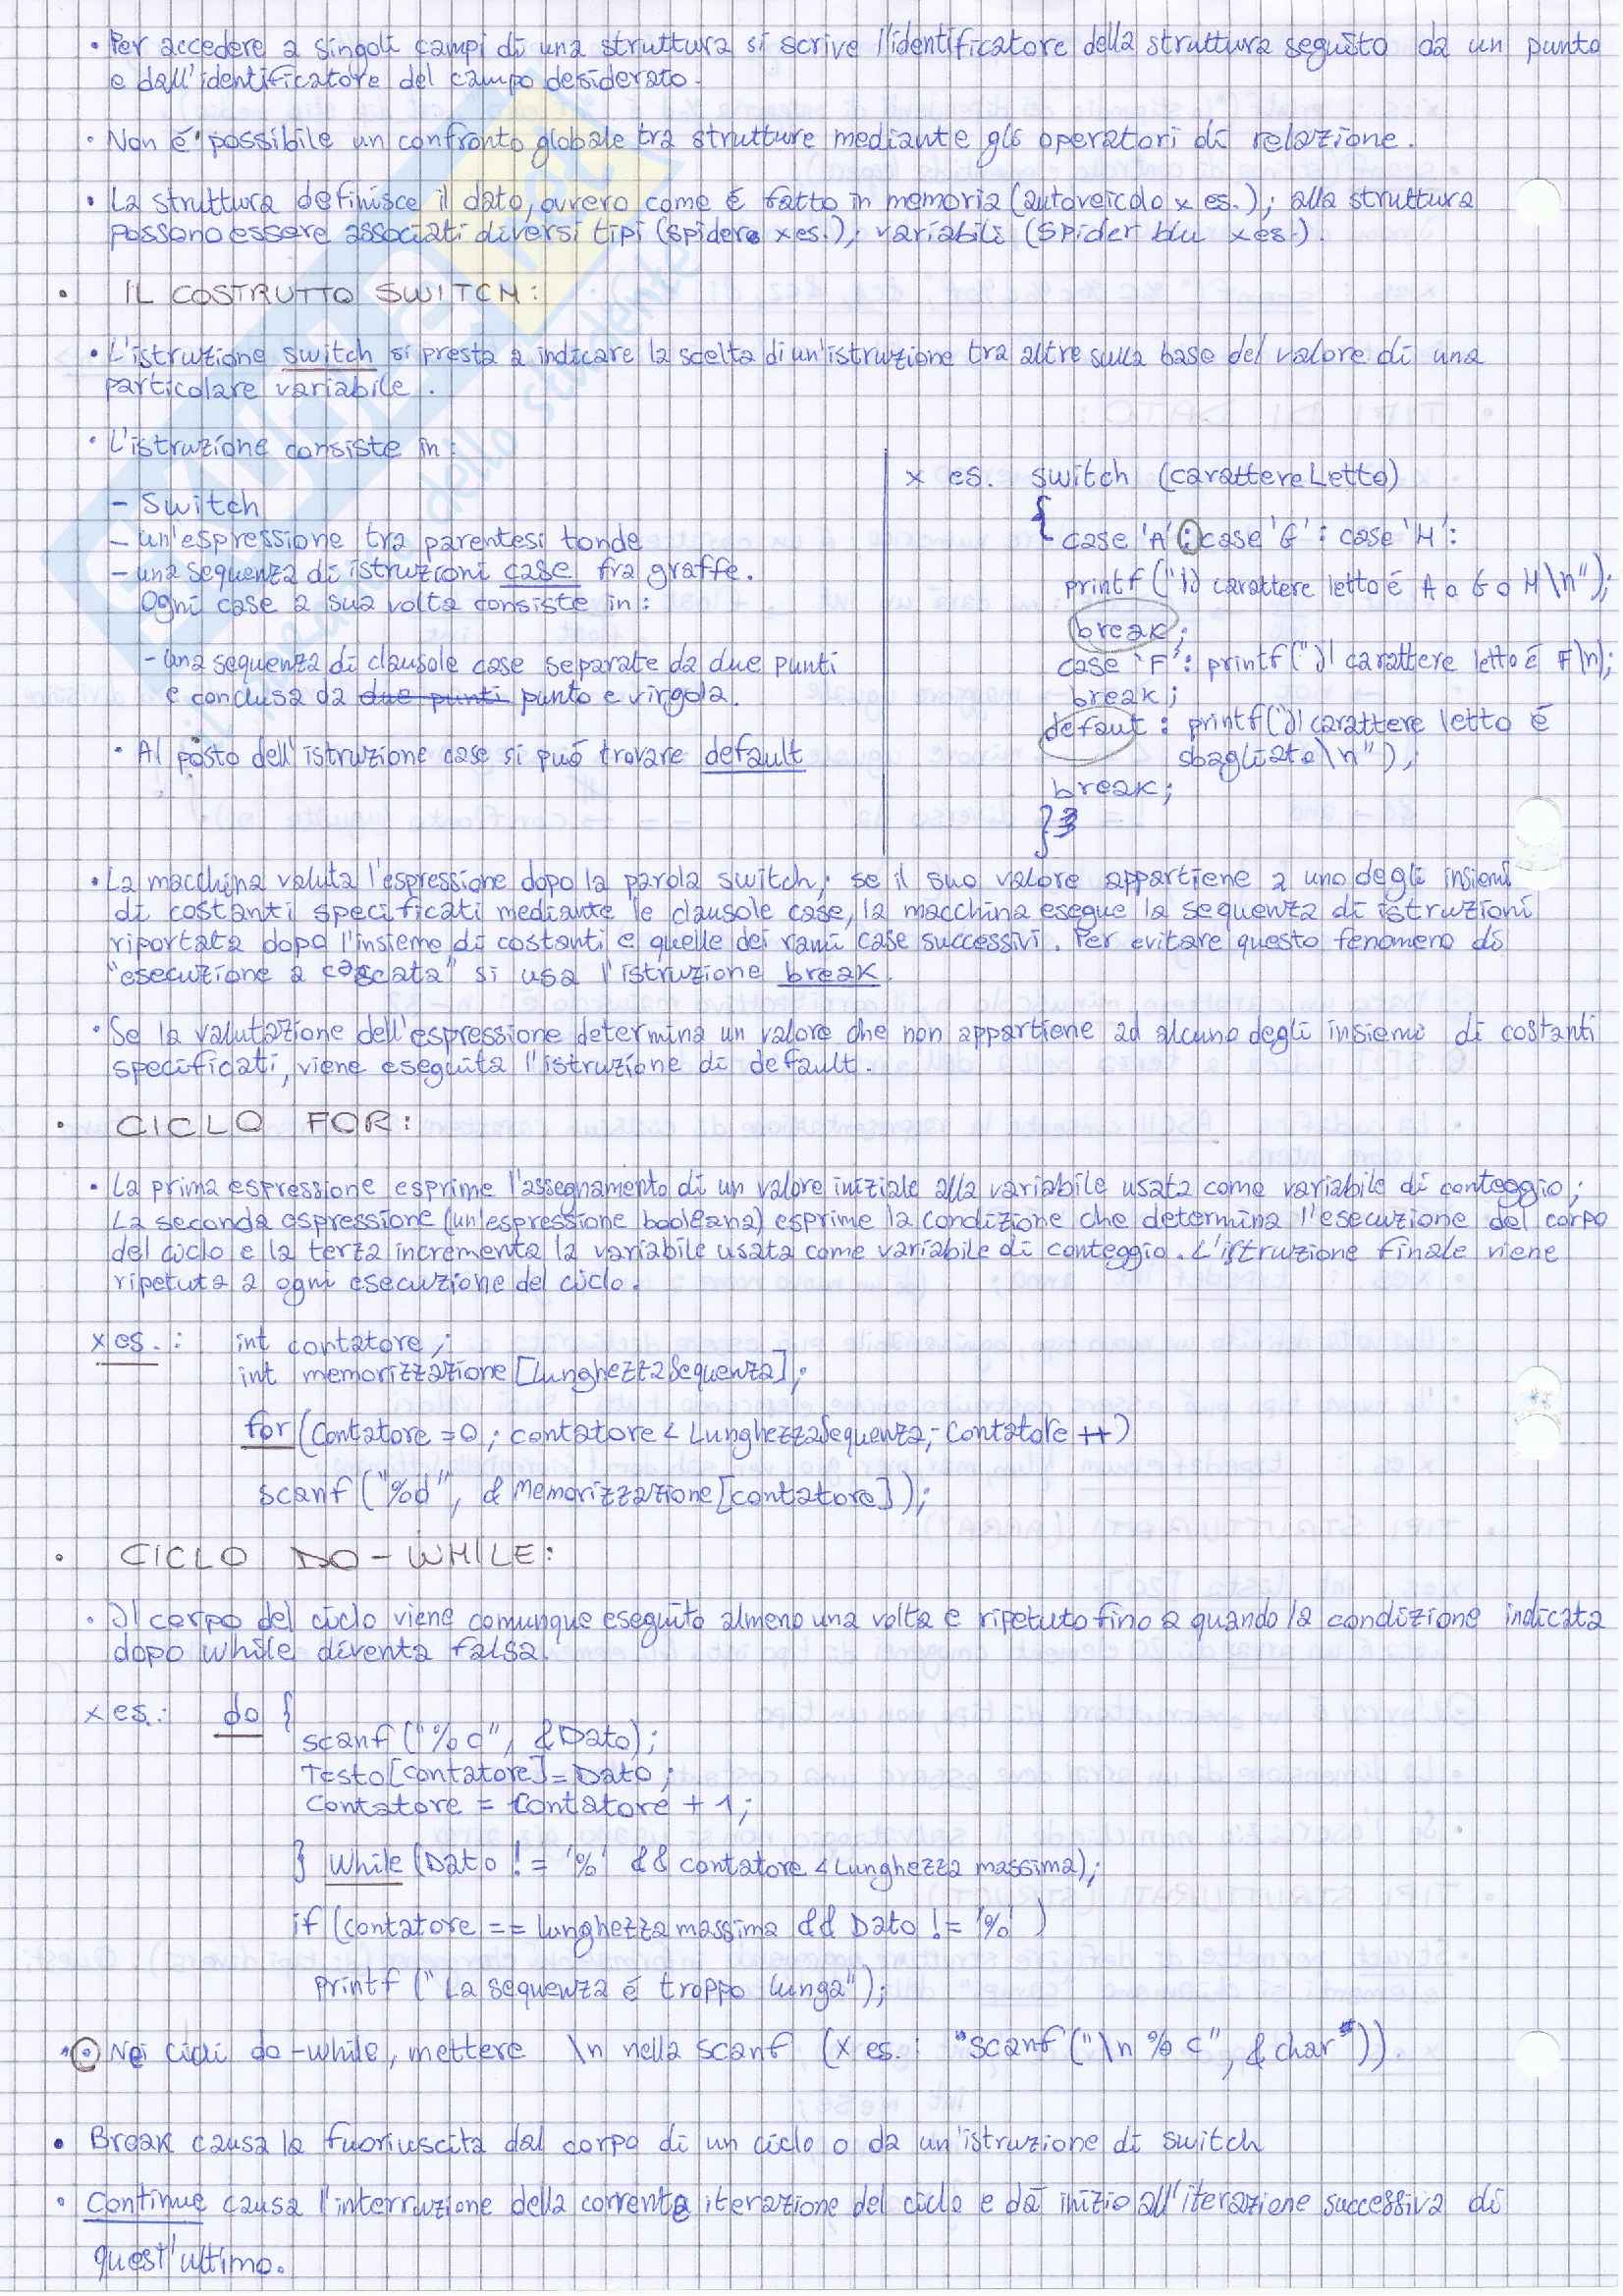 • Per accedere a singoli campi di una struttura si scrive l'identificatore della struttura seguito da un punto
e dall'identificatore del campo desiderato.
• Non é possibile un confronto globale tra strutture mediante gli operatori di relazione.
• La struttura definisce il dato, ovvero come é fatto in memoria (autoveicolo x es.); alla struttura
possono essere associati diversi tipi (spider x es.), variabili (spider blu x es.).
• IL COSTRUTTO SWITCH:
• L'istruzione switch si presta a indicare la scelta di un'istruzione tra altre sulla base del valore di una
particolare variabile.
• L'istruzione consiste in:
- Switch
- un'espressione tra parentesi tonde
- una sequenza di istruzioni case fra graffe.
Ogni case a sua volta consiste in:
- una sequenza di clausole case separate da due punti
e conclusa da due punti punto e virgola.
• Al posto dell'istruzione case si puó trovare default
x es. switch (carattereLetto)
{
case 'A': case 'G': case 'H':
printf("Il carattere letto é A o G o H\n");
break;
case 'F': printf("Il carattere letto é F\n);
break;
defaut: printf("Il carattere letto é
sbagliato\n");
break;
}
• La macchina valuta l'espressione dopo la parola switch; se il suo valore appartiene a uno degli insiemi
di costanti specificati mediante le clausole case, la macchina esegue la sequenza di istruzioni
riportata dopo l'insieme di costanti e quelle dei rami case successivi. Per evitare questo fenomeno di
"esecuzione a cascata" si usa l'istruzione break.
• Se la valutazione dell'espressione determina un valore che non appartiene ad alcuno degli insiemi di costanti
specificati, viene eseguita l'istruzione di default.
• CICLO FOR:
• La prima espressione esprime l'assegnamento di un valore iniziale alla variabile usata come variabile di conteggio;
La seconda espressione (un'espressione booleana) esprime la condizione che determina l'esecuzione del corpo
del ciclo e la terza incrementa la variabile usata come variabile di conteggio. L'istruzione finale viene
ripetuta a ogni esecuzione del ciclo.
x es.: int contatore;
int memorizzazione[LunghezzaSequenza];
for (Contatore = 0; contatore < LunghezzaSequenza; Contatore ++)
scanf("%d", & Memorizzazione[contatore]);
• CICLO DO-WHILE:
• Il corpo del ciclo viene comunque eseguito almeno una volta e ripetuto fino a quando la condizione indicata
dopo while diventa falsa.
x es.: do {
scanf("%c", &Dato);
Testo[contatore]=Dato;
Contatore = Contatore + 1;
} while (Dato != '%' && contatore < Lunghezza massima);
if (contatore == lunghezza massima && Dato != '%')
printf ("La sequenza é troppo lunga");
• Nei cicli do-while, mettere \n nella scanf (x es.: "scanf("\n %c", &char"))
• Break causa la fuoriuscita dal corpo di un ciclo o da un'istruzione di switch
• Continue causa l'interruzione della corrente iterazione del ciclo e dá inizio all'iterazione successiva di
quest'ultimo.